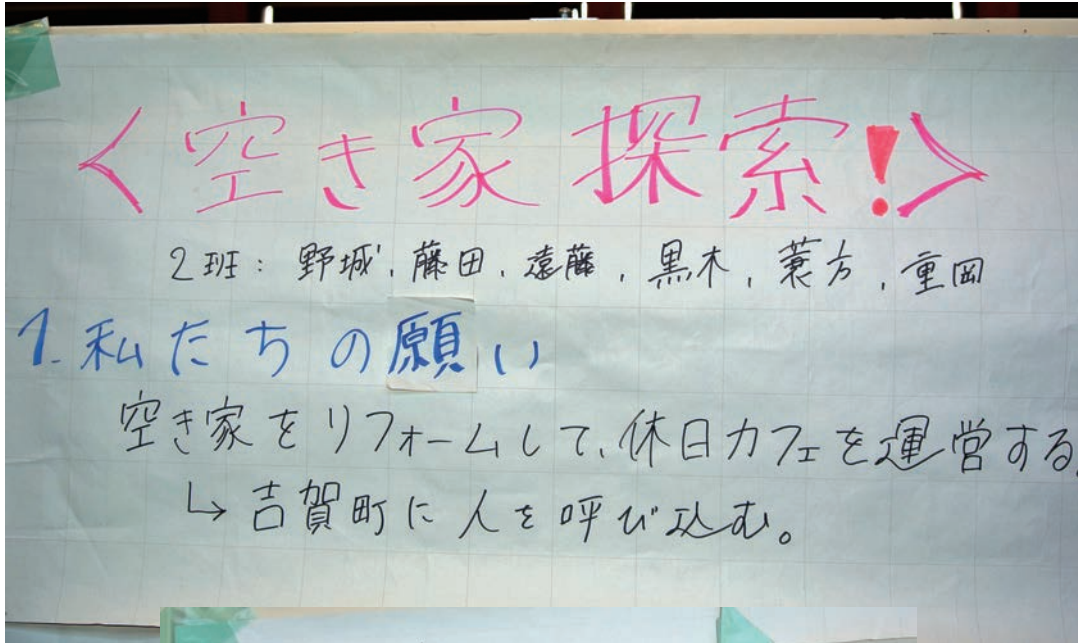 <空き家探索!>
2班: 野城, 藤田, 遠藤, 黒木, 蓑方, 重岡
1. 私たちの願い
空き家をリフォームして、休日カフェを運営する。
↳ 吉賀町に人を呼び込む。